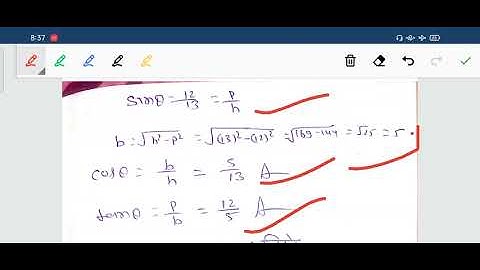 8:37
sinθ = 12/13 = p/h
b = √h²-p² = √(13)²-(12)² = √169-144 = √25 = 5.
cosθ = b/h = 5/13 A
tanθ = p/b = 12/5 A